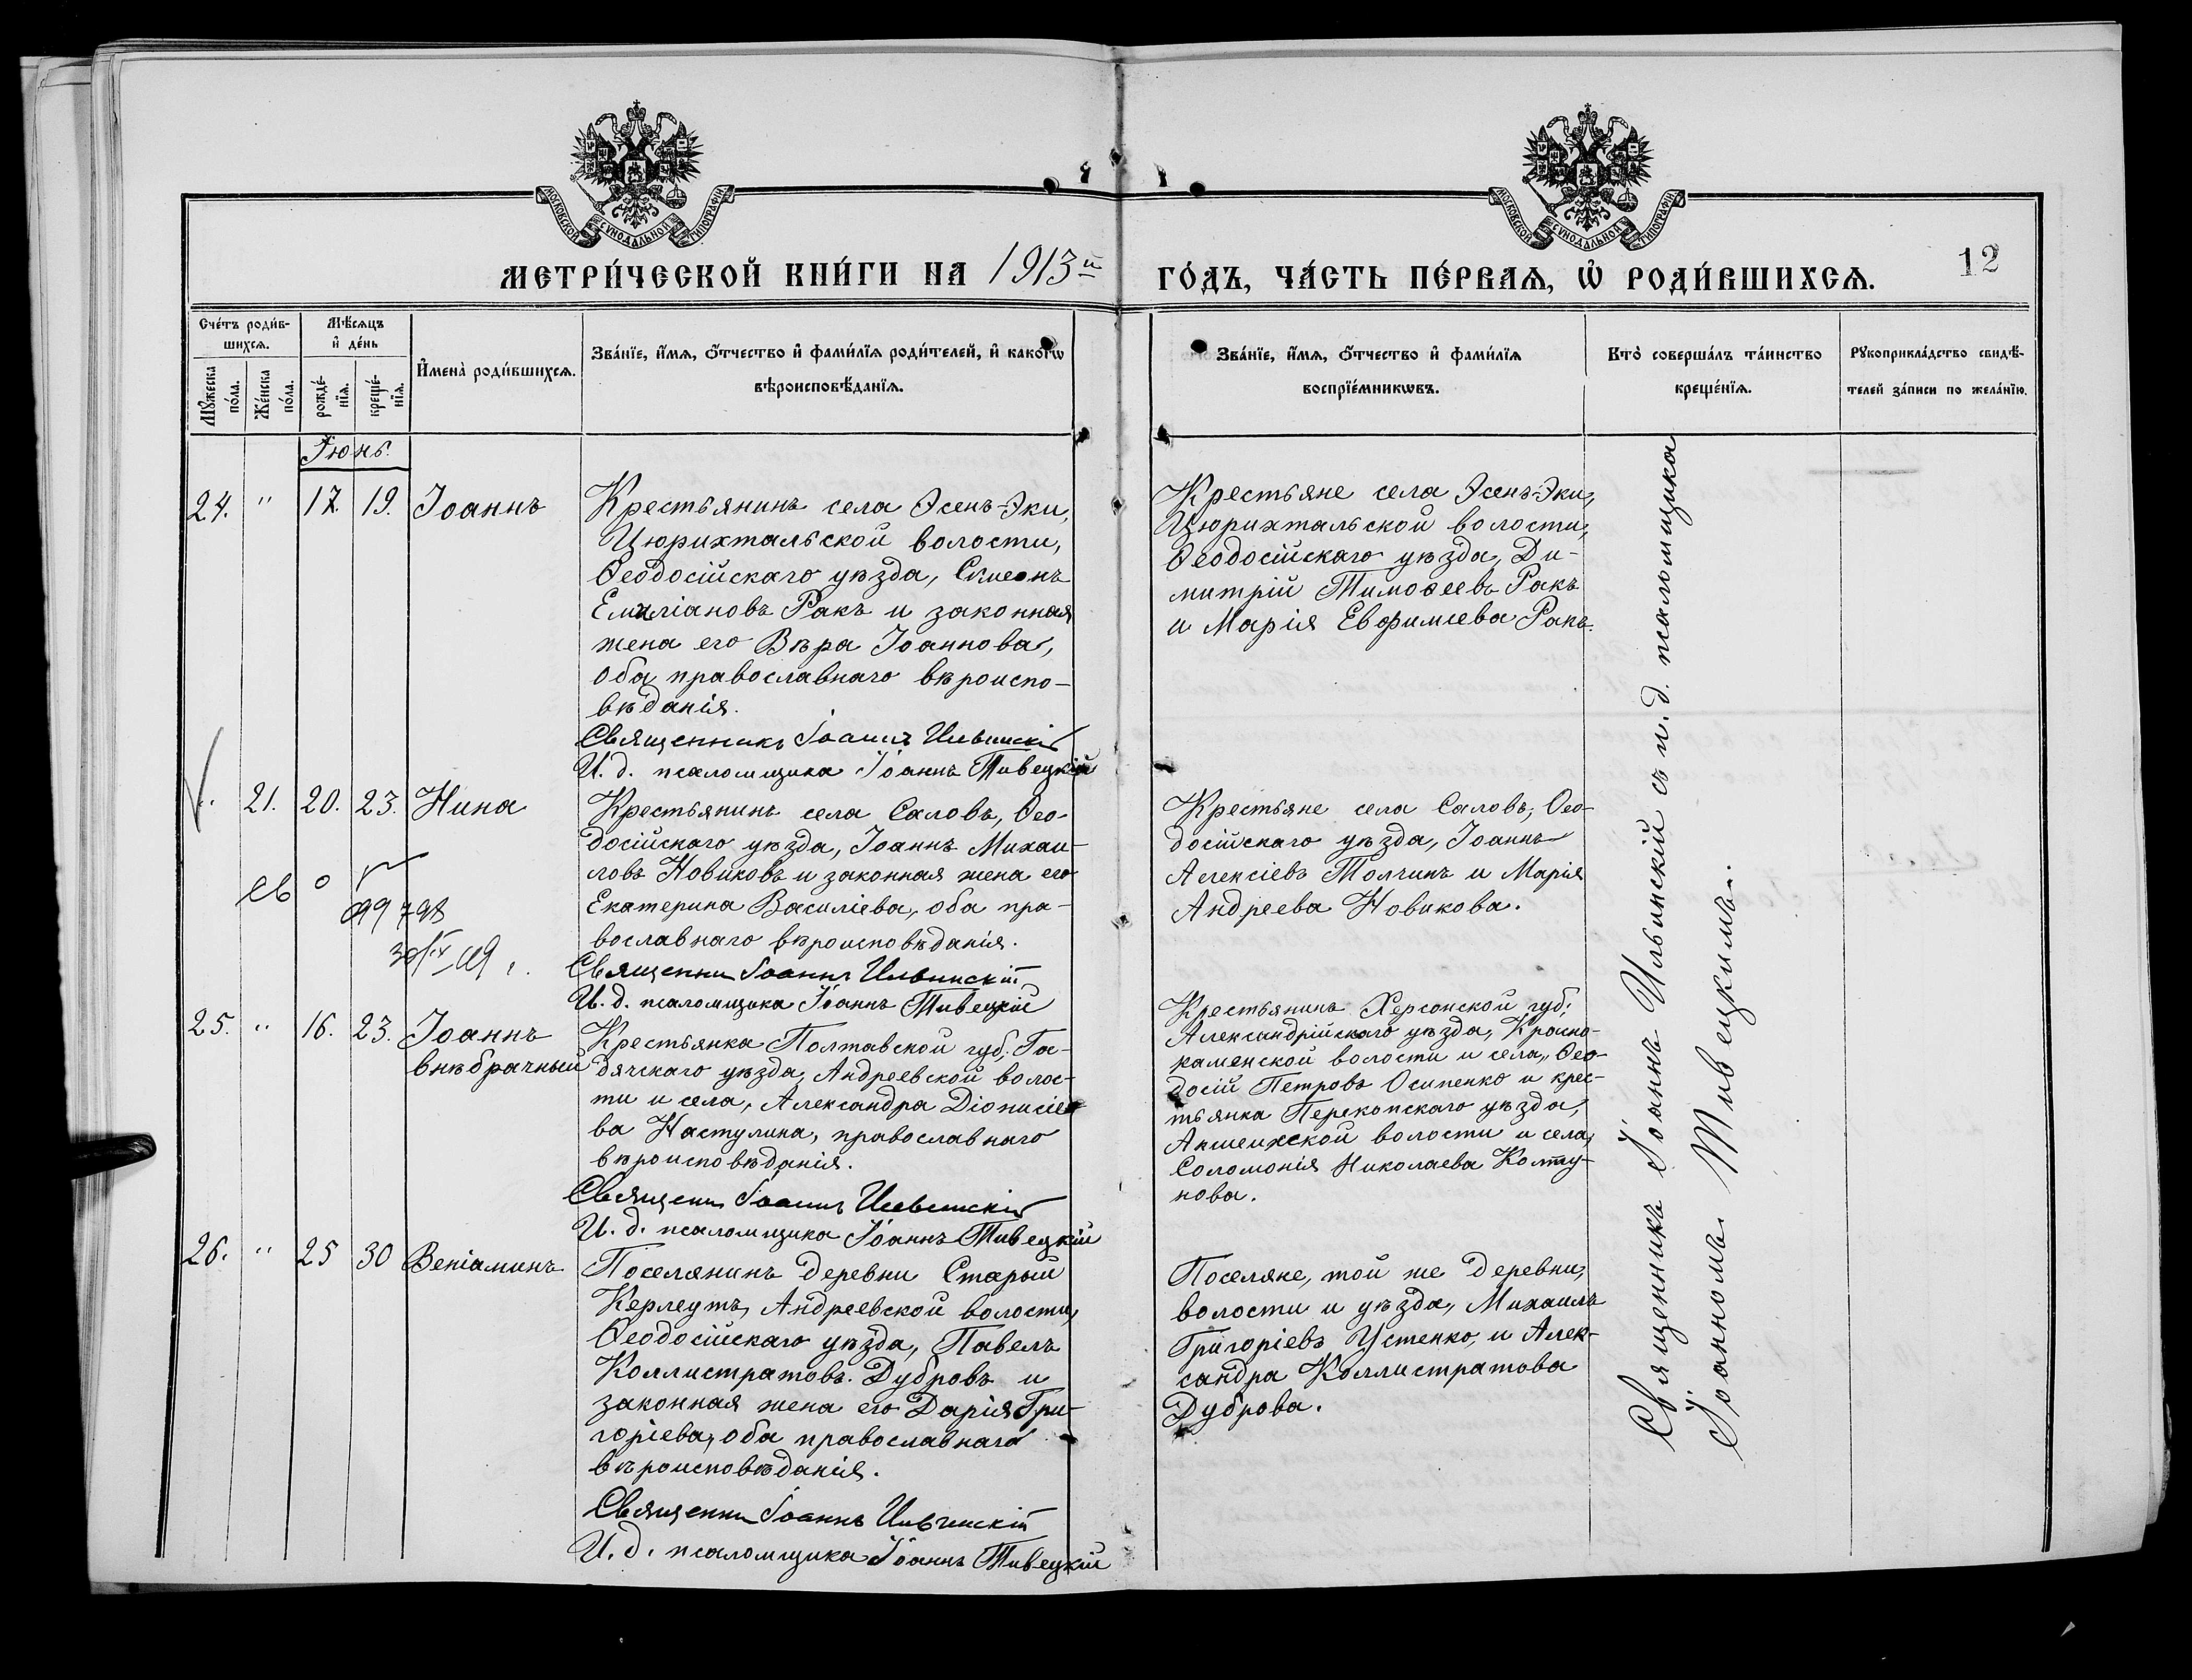 МОСКОВСКОЙ СѴНОДАЛЬНОЙ ТИПОГРАФІИ
МОСКОВСКОЙ СѴНОДАЛЬНОЙ ТИПОГРАФІИ
МЕТРИ́ЧЕСКОЙ КНИ́ГИ НА 1913й ГО́ДЪ, ЧА́СТЬ ПЕ́РВАЯ, Ѡ РОДИ́ВШИХСѦ.
12
Сче́тъ роди́в-
шихсѧ.
Мѣ́сѧцъ
и҆ де́нь
Мꙋ́жеска
по́ла.
Же́нска
по́ла.
рожде́-
нїѧ.
креще́-
нїѧ.
И҆мена̀ роди́вшихсѧ.
Зва́нїе, и҆́мѧ, ѻ҆́тчество и҆ фами́лїѧ роди́телей, и҆ како́гѡ
вѣроисповѣ́данїѧ.
Зва́нїе, и҆́мѧ, ѻ҆́тчество и҆ фами́лїѧ
воспрїе́мникѡвъ.
Кто̀ соверша́лъ та́инство
креще́нїѧ.
Рꙋкоприкла́дство свидѣ́-
телей за́писи по жела́нїю.
Іюнь.
24. " 17. 19. Іоаннъ
Крестьянинъ села Эсенъ-Эки,
Цюрихтальской волости,
Ѳеодосійскаго уѣзда, Симеонъ
Емиліановъ Ракъ и законная
жена его Вѣра Іоаннова,
оба православнаго вѣроиспо-
вѣданія.
Священникъ Іоаннъ Ильинскій
И. д. псаломщика Іоаннъ Тивецкій
Крестьяне села Эсенъ-Эки,
Цюрихтальской волости,
Ѳеодосійскаго уѣзда, Ди-
митрій Тимоѳеевъ Ракъ
и Марія Евфимиева Ракъ.
21. 20. 23. Нина
Крестьянинъ села Саловъ, Ѳео-
досійскаго уѣзда, Іоаннъ Михаи-
ловъ Новиковъ и законная жена его
Екатерина Василіева, оба пра-
вославнаго вѣроисповѣданія.
Священни Іоаннъ Ильинскій
И. д. псаломщика Іоаннъ Тивецкій
Крестьяне села Саловъ, Ѳео-
досійскаго уѣзда, Іоаннъ
Алексіевъ Толчинъ и Марія
Андреева Новикова.
25. " 16. 23. Іоаннъ
внѣбрачный
Крестьянка Полтавской губ. Га-
дячскаго уѣзда, Андреевской волос-
ти и села, Александра Діонисіе-
ва Настулина, православнаго
вѣроисповѣданія.
Священни Іоаннъ Ильинскій
И. д. псаломщика Іоаннъ Тивецкій
Крестьянинъ Херсонской губ.
Александрійскаго уѣзда, Красно-
каменской волости и села, Ѳео-
досій Петровъ Осипенко и крес-
тьянка Перекопскаго уѣзда,
Акшеихской волости и села,
Соломонія Николаева Колту-
нова.
26. " 25 30 Веніаминъ
Поселянинъ деревни Старый
Керлеутъ, Андреевской волости,
Ѳеодосійскаго уѣзда, Павелъ
Каллистратовъ Дубровъ и
законная жена его Дарія Гри-
горіева, оба православнаго
вѣроисповѣданія.
Священни Іоаннъ Ильинскій
И. д. псаломщика Іоаннъ Тивецкій
Поселяне, той же деревни,
волости и уѣзда, Михаилъ
Григоріевъ Устенко, и Алек-
сандра Каллистратова
Дуброва.
Священникъ Іоаннъ Ильинскій съ и. д. псаломщика
Іоанномъ Тивецкимъ.